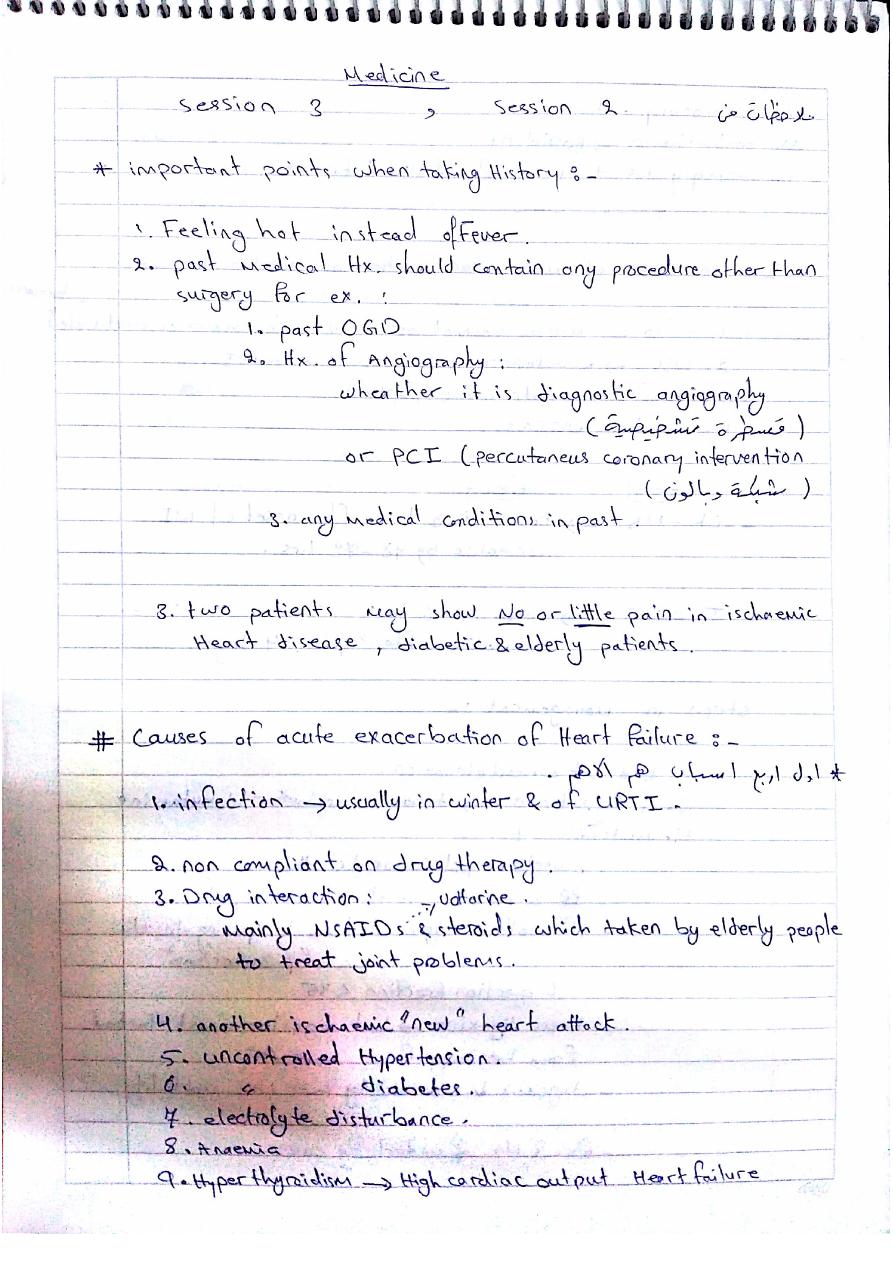 Medicine
Session 3 , Session 2 ملاحظات من
* important points when taking History :-
1. Feeling hot instead of Fever.
2. past Medical Hx. should contain any procedure other than
surgery for ex. :
1. past OGD
2. Hx. of Angiography :
wheather it is diagnostic angiography
( قسطرة تشخيصية )
or PCI ( percutaneus coronary intervention
( شبكة وبالون )
3. any Medical conditions in past .
3. two patients may show No or little pain in ischaemic
Heart disease , diabetic & elderly patients .
# Causes of acute exacerbation of Heart failure :-
* اول اربع اسباب هم الاهم .
1. infection → usually in winter & of URTI .
2. non compliant on drug therapy .
3. Drug interaction :
Mainly NSAIDs & steroids which taken by elderly people
to treat joint problems .
4. another ischaemic "new" heart attack .
5. uncontrolled Hypertension .
6. " diabetes .
7. electrolyte disturbance .
8. Anaemia
9. Hyperthyroidism → High cardiac output Heart failure